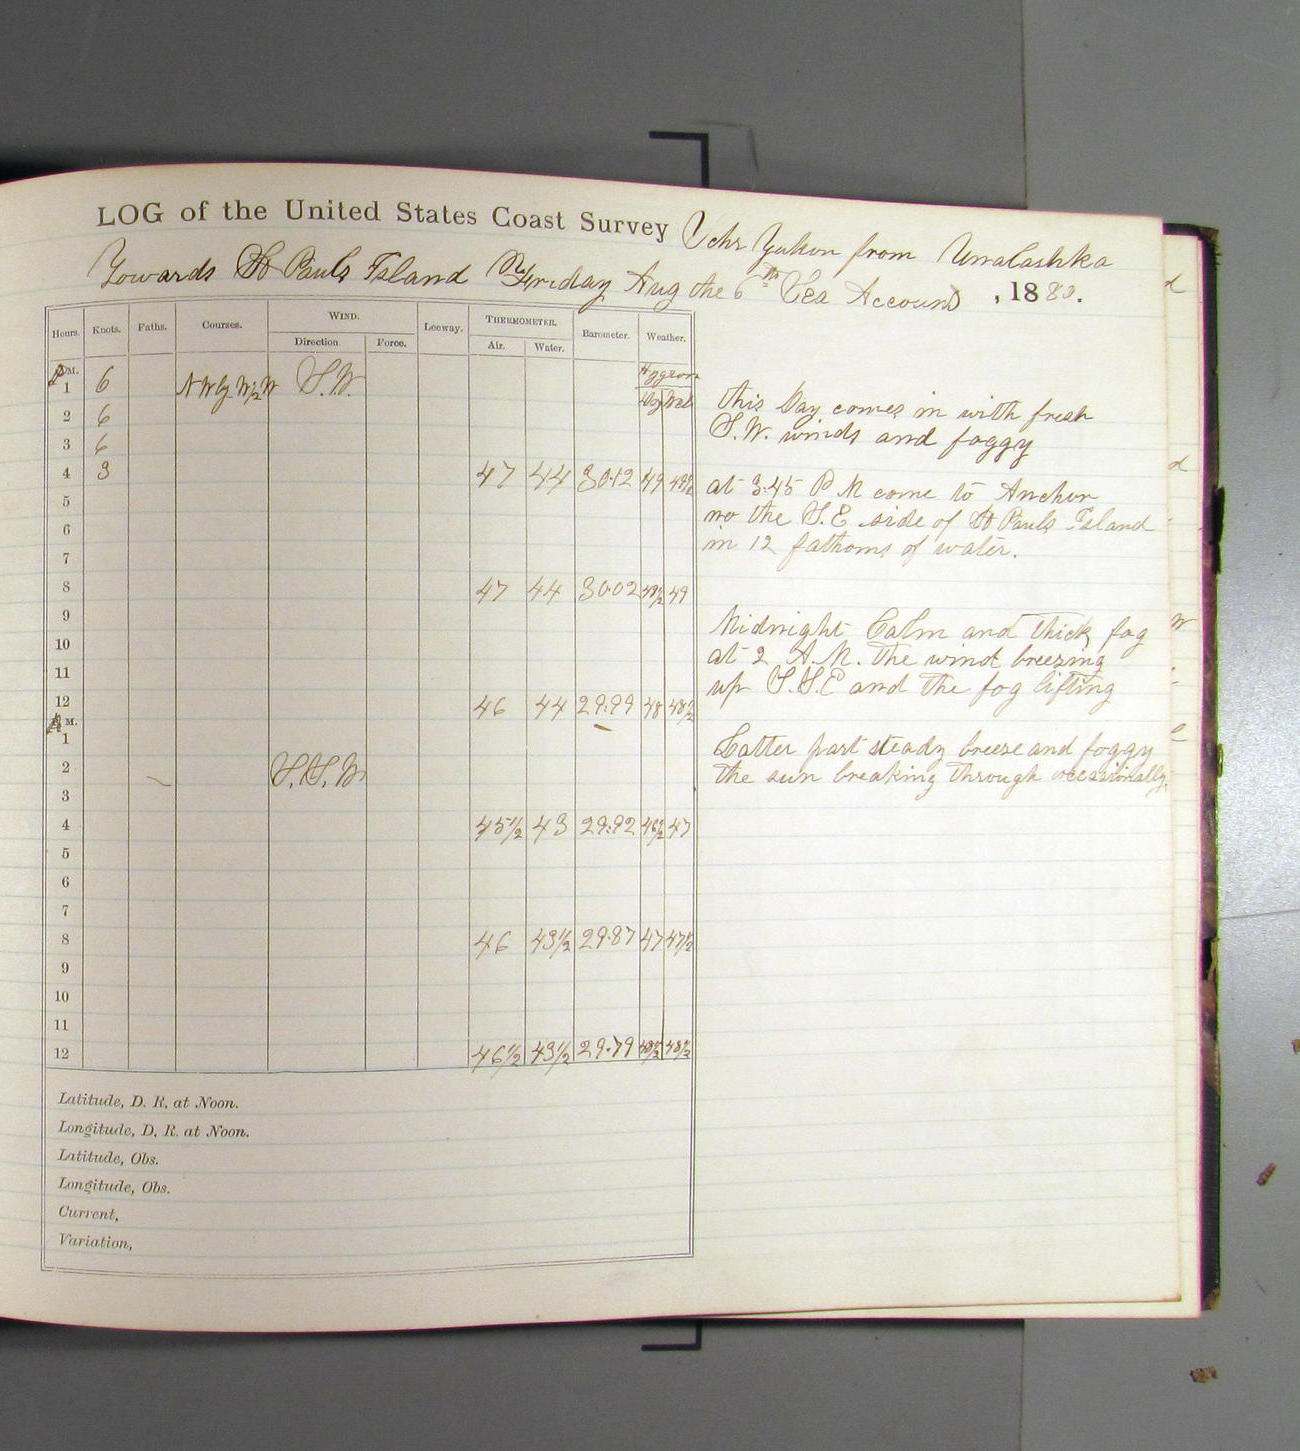 LOG of the United States Coast Survey Schr Yukon from Unalashka
Towards St Pauls Island Friday Aug the 6th Sea Account, 1880.
Hours. Knots. Faths. Courses. WIND. Leeway. THERMOMETER. Barometer. Weather.
Direction Force. Air. Water.
P M. Hygrom
1 6 N W by W ½ W S.W. Dry Wet
2 6
3 6
4 3 47 44 30.12 49
5
6
7
8 47 44 30.02 48½ 49
9
10
11
12 46 44 29.99 48 48½
A M.
1
2 S.S.W
3
4 45½ 43 29.92 46½ 47
5
6
7
8 46 43½ 29.87 47 47½
9
10
11
12 46½ 43½ 29.79 48½
Latitude, D. R. at Noon.
Longitude, D. R. at Noon.
Latitude, Obs.
Longitude, Obs.
Current,
Variation,
this Day comes in with fresh
S.W. winds and foggy
at 3.45 P M come to Anchor
no the S.E side of St Pauls Island
in 12 fathoms of water.
Midnight Calm and thick fog
at 2 A.M. the wind breezing
up S.S.E and the fog lifting
Latter part steady breeze and foggy
the sun breaking through occasionally.